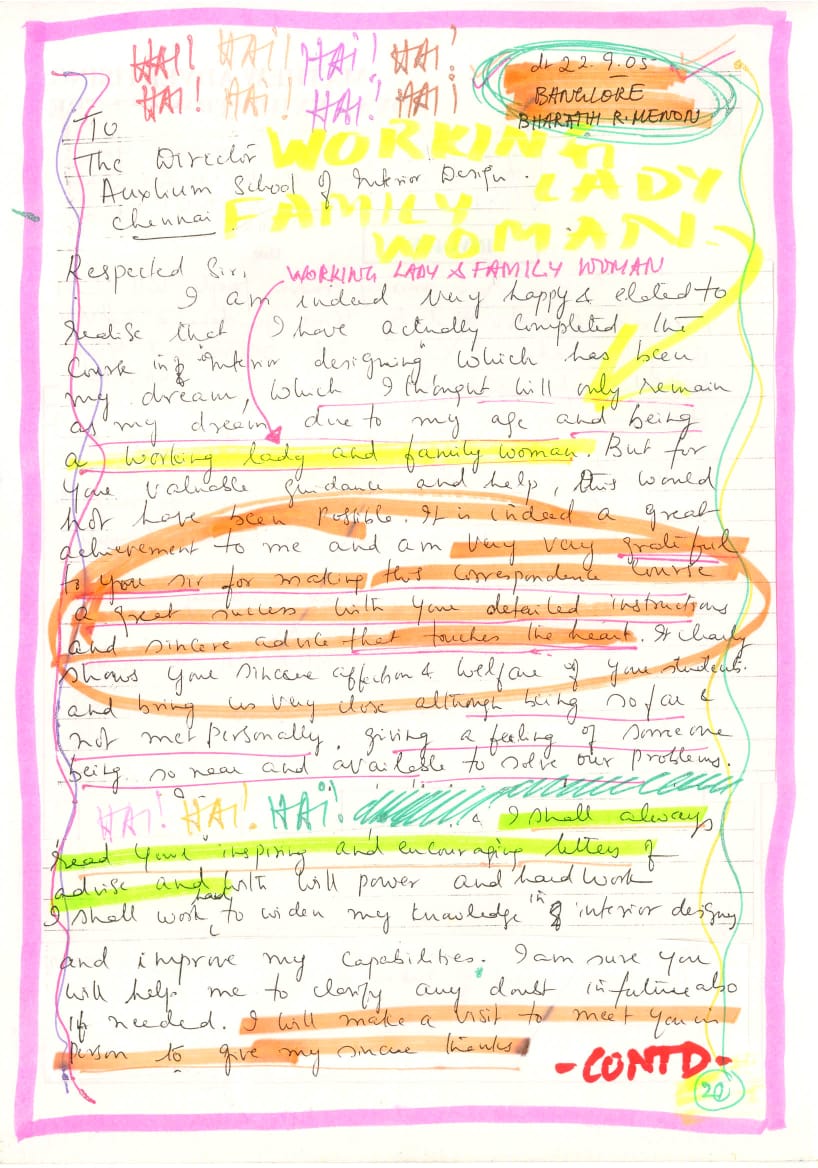 HAI! HAI! HAI! HAI!
HAI! HAI! HAI! HAI!
dt 22.9.05
BANGLORE
BHARATHI R. MENON
To
The Director
Auxlium School of Interior Design.
Chennai
WORKING LADY
FAMILY WOMAN
Respected Sir,
WORKING LADY & FAMILY WOMAN
I am indeed very happy & elated to
realise that I have actually completed the
course in "Interior designing" which has been
my dream, which I thought will only remain
as my dream due to my age and being
a working lady and family woman. But for
your valuable guidance and help, this would
not have been possible. It is indeed a great
achievement to me and am very very grateful
to you sir for making this correspondence course
a great success with your detailed instructions
and sincere advice that touches the heart. It clearly
shows your sincere affection & welfare of your students.
and bring us very close although being so far &
not met personally, giving a feeling of someone
being so near and available to solve our problems.
HAI! HAI! HAI!
& I shall always
read your inspiring and encouraging letters of
advise and with will power and hard work
I shall work hard to widen my knowledge in interior designing
and improve my capabilities. I am sure you
will help me to clarify any doubt in future also
if needed. I will make a visit to meet you in
person to give my sincere thanks
-CONTD-